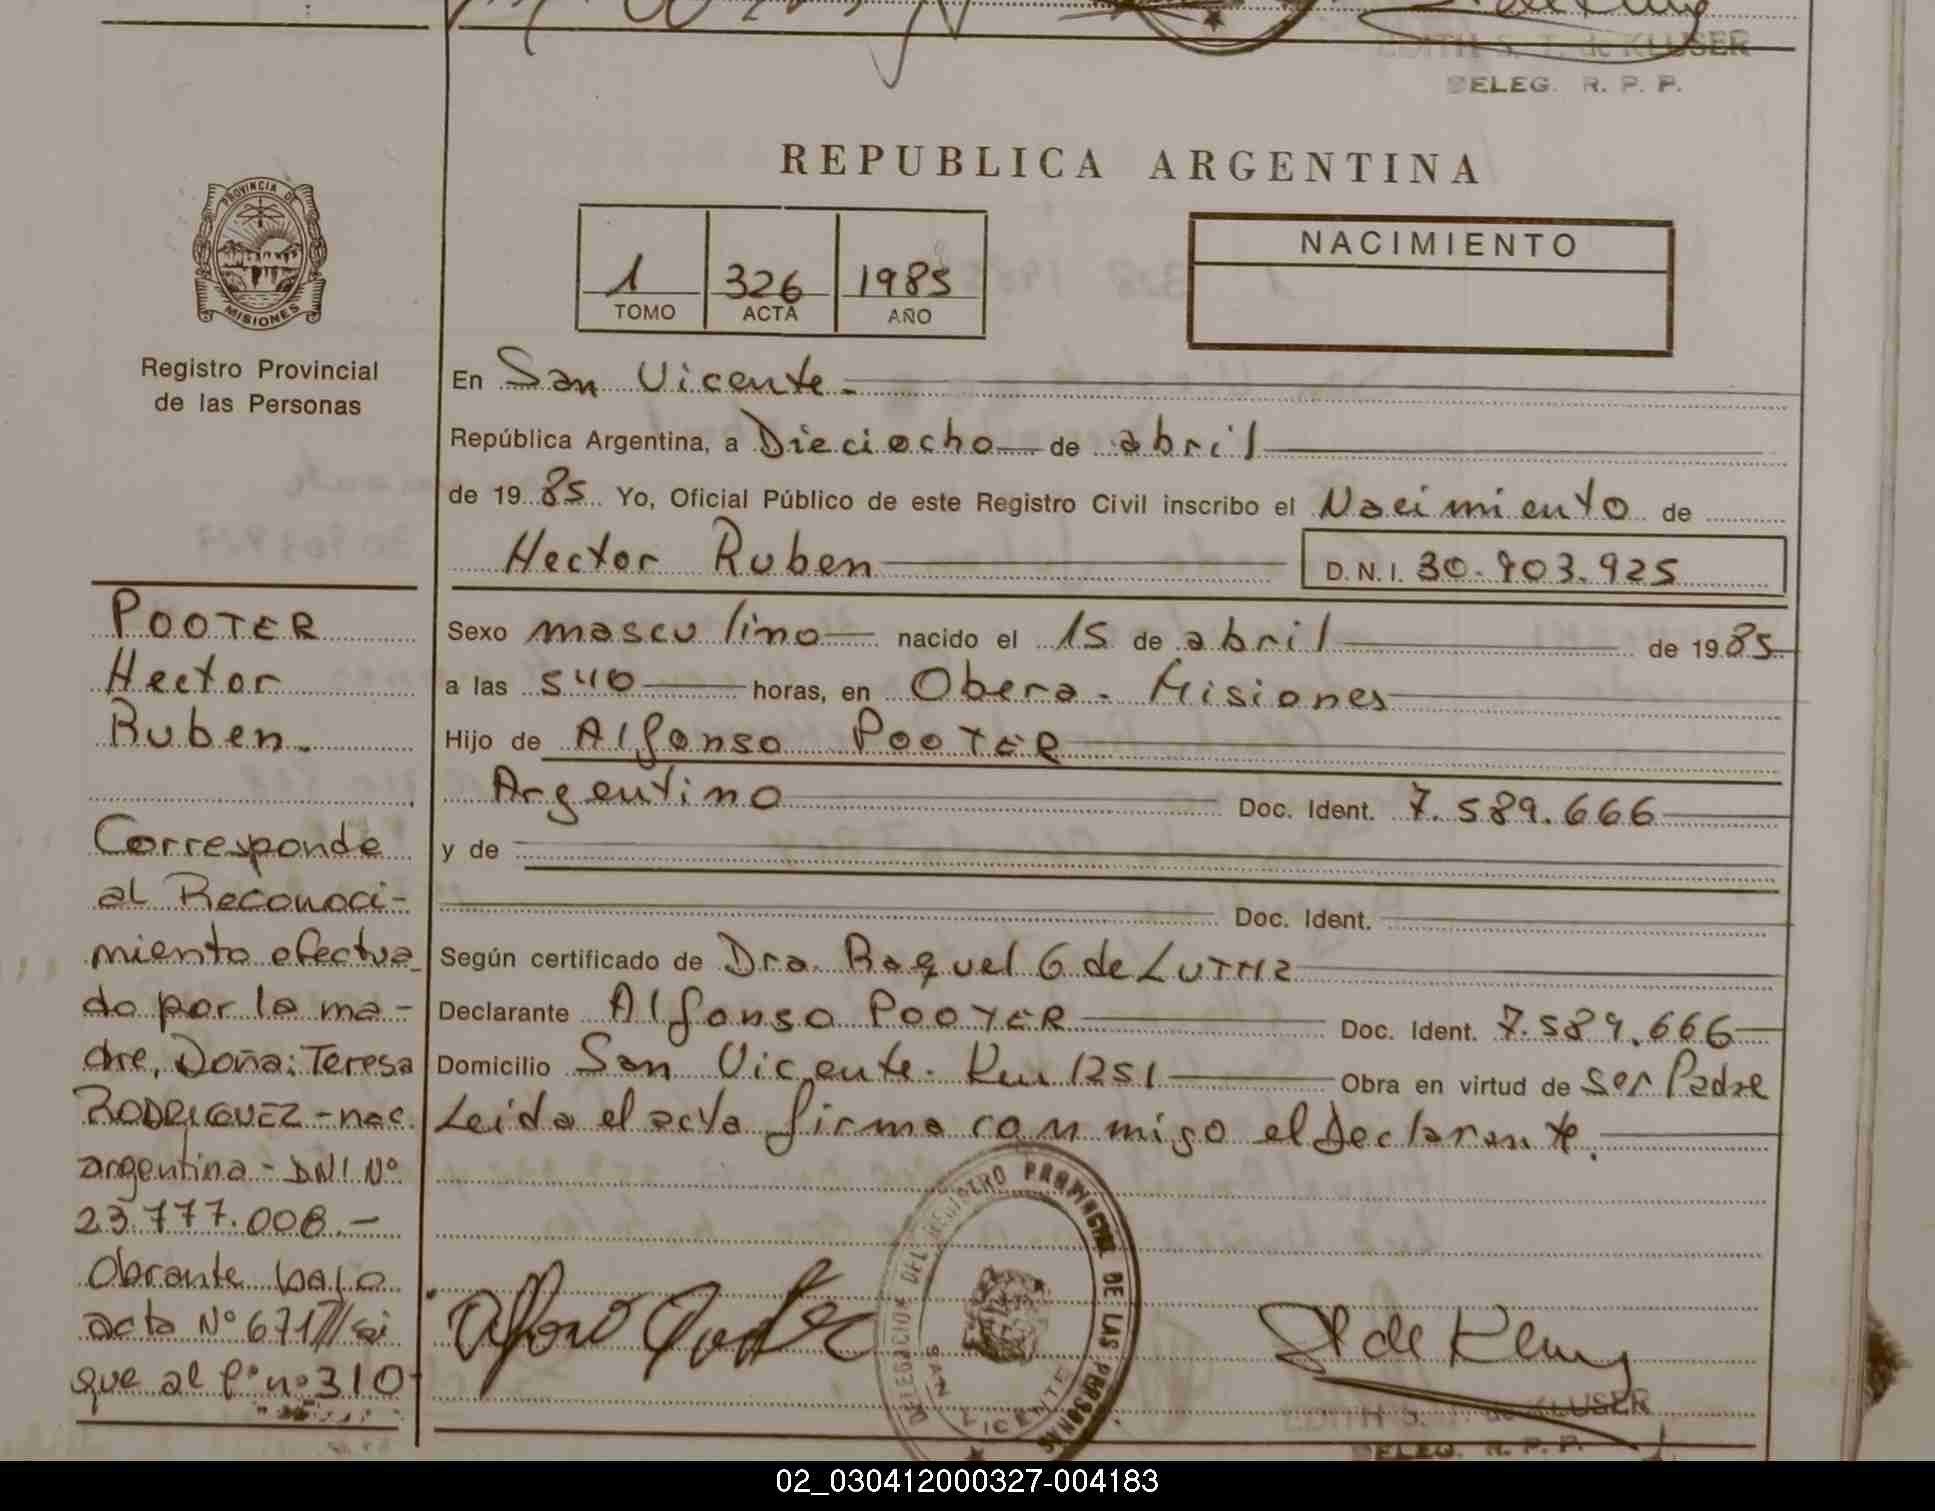 EDITH S. T. de KLUSER
DELEG. R. P. P.
REPUBLICA ARGENTINA
PROVINCIA DE
MISIONES
Registro Provincial
de las Personas
1 326 1985
TOMO ACTA AÑO
NACIMIENTO
En San Vicente.-
República Argentina, a Dieciocho de abril
de 1985 Yo, Oficial Público de este Registro Civil inscribo el Nacimiento de
Hector Ruben D.N.I. 30.903.925
Sexo masculino nacido el 15 de abril de 1985
a las 540 horas, en Obera. Misiones
Hijo de Alfonso POOTER
Argentino Doc. Ident. 7.589.666
y de
Doc. Ident.
Según certificado de Dra. Raquel G de LUTHZ
Declarante Alfonso POOTER Doc. Ident. 7.589.666
Domicilio San Vicente. Km 1251 Obra en virtud de Ser Padre
Leida el acta firma conmigo el Declarante.
POOTER
Hector
Ruben.
Corresponde
al Reconoci-
miento efectua_
do por la ma-
dre, Doña: Teresa
RODRIGUEZ - nac.
argentina - DNI Nº
23.777.008.-
Obrante bajo
acta Nº 671// si
que al fº nº 310
DELEGACION DEL REGISTRO PROVINCIAL DE LAS PERSONAS
SAN VICENTE
EDITH S. T. de KLUSER
DELEG. R. P. P.
02_030412000327-004183